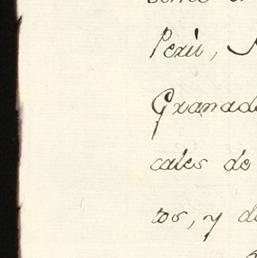 Perú,
Granad
cales de
tos, y d